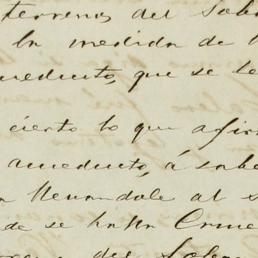 terrenos del Sobr
la medida de l
ueducto, que se le
cierto lo que afir
amueducto, á sabe
n llevandole al s
de se halla Cruce
del Sobera